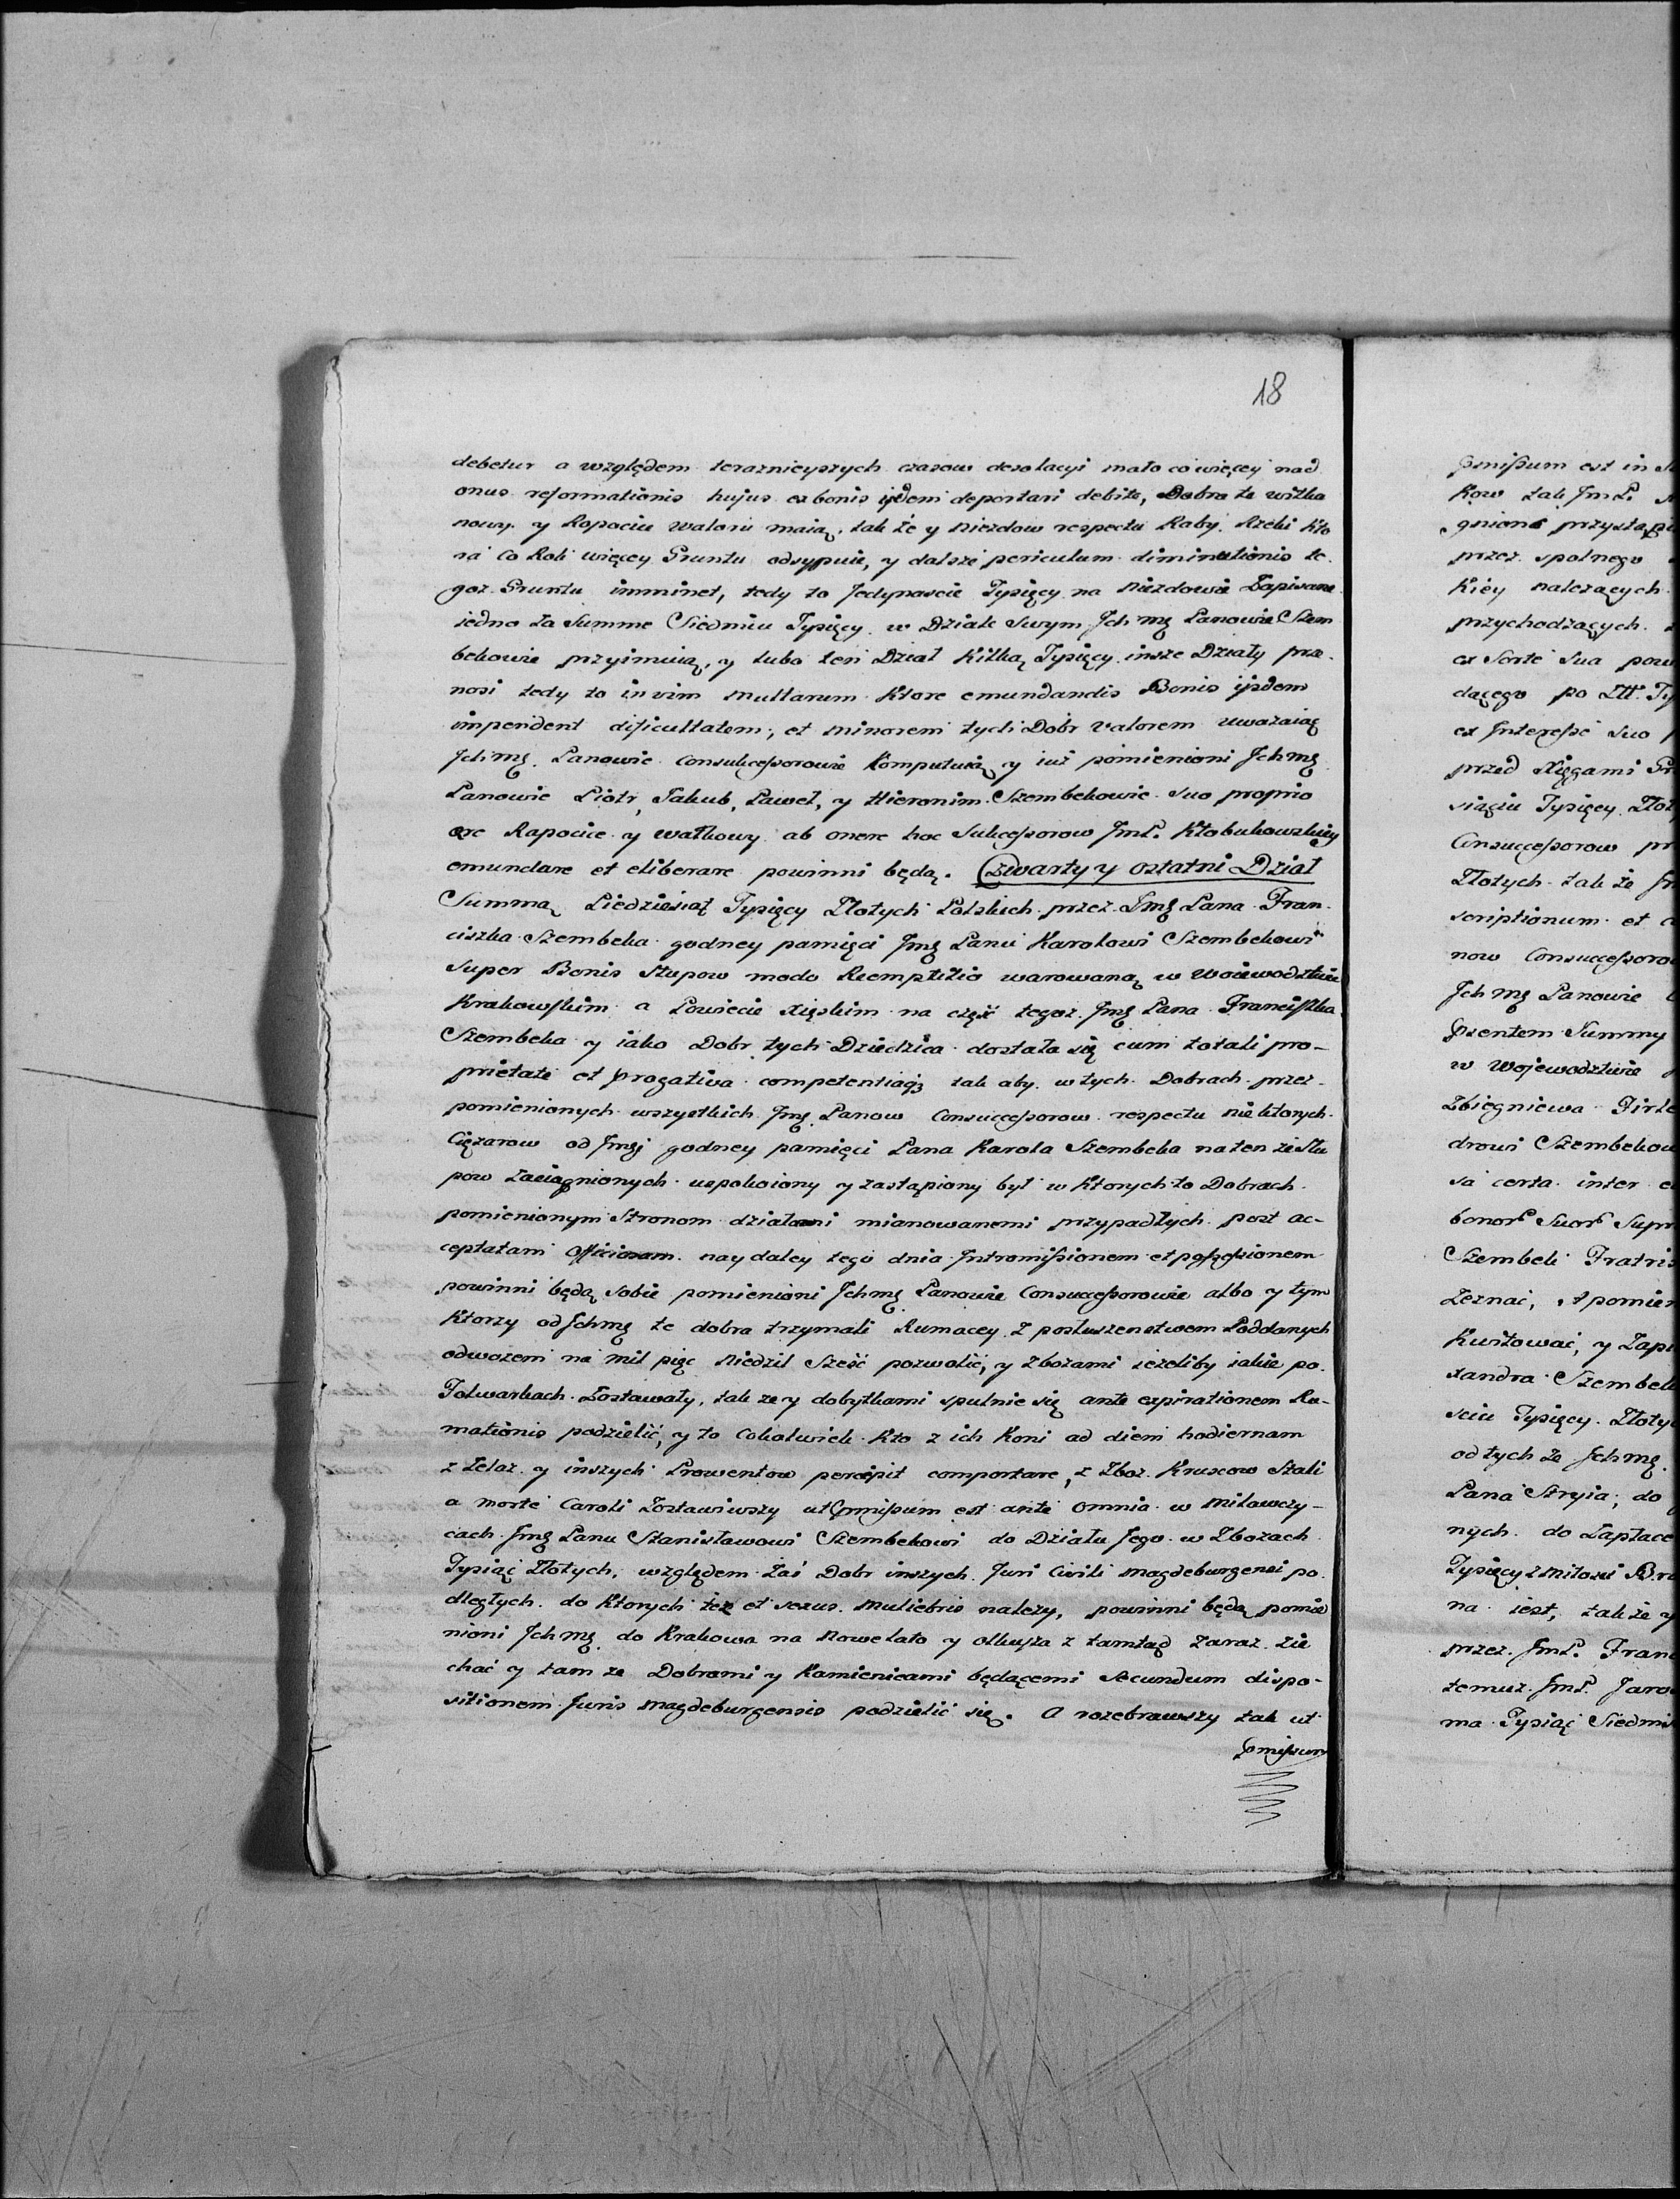 18
debetur a względem teraznieyszych czasow desolacyi mało co więcey nad
onus reformationis hujus ex bonis ijsdem deportari debite, Dobra te witka
nowy y Ropocice waloru maią, tak że y Niezdow respectu Raby Rzeki kto
ra co Rok więcey Gruntu odsypuie, y dalsze periculum diminutionis te
goz Gruntu imminet, tedy to Jedynascie Tysięcy na Niezdowie Zapisane
iedno za Summe Siedmiu Tysięcy w Dziale Swym Jch mę Panowie Szem
bekowie przyimuią, y lubo ten Dział kilką Tysięcy insze Działy prze
nosi tedy to in vim multarum ktore emundandis Bonis ijsdem
impendent dificultatem, et minorem tych Dobr valorem uważaiąc
Jchmę Panowie consukcessorowie komputuią y iuż pomienioni Jchmę
Panowie Piotr, Jakub, Paweł, y Hieronim Szembekowie suo proprio
ære Rapocice y watkowy ab onere hoc Sukcessorow JmP. Kłobukowskiey
emundare et eliberare powinni będą. Czwarty y ostatni Dział
Summą Piedziesiąt Tysięcy Złotych Polskich przez Jmę Pana Fran
ciszka Szembeka godney pamięci Jmę Panu Karolowi Szembekowi
Super Bonis Słupow modo Reemptitio warowaną w Woiewodztwie
Krakowskim a Powiecie Xięskim na część tegoż Jmę Pana Franciszka
Szembeka y iako Dobr tych Dziedzica dostała się cum totali pro-
prietate et prerogativa competentiaq3 tak aby w tych Dobrach przez
pomienionych wszystkich Jmę Panow Consuccessorow respectu niektorych
Ciężarow od Jmęj godney pamięci Pana Karola Szembeka na ten że Słu
pow zaciągnionych uspokoiony y zastąpiony był w ktorych to Dobrach
pomienionym Stronom działami mianowanemi przypadłych post ac-
ceptatam Officiosam naydaley tego dnia Intromissionem et possessionem
powinni będą sobie pomienioni Jchmę Panowie Consuccessorowie albo y tym
ktorzy od Jchmę te dobra trzymali Rumacey z posłuszenstwem Poddanych
odwozem na mil pięc Niedzil Sześć pozwolić, y zbożami ieżeliby iakie po
Folwarkach Zostawały, tak ze y dobytkami spulnie się ante expirationem Ru-
mationis podzielić, y to cokolwiek kto z ich koni ad diem hodiernam
z Żelaz y inszych Prowentow percepit comportare, z Zboż Kruscow Stali
a morte Caroli Zostawiwszy ut pmissum est ante omnia w Miławczy-
cach Jmę Panu Stanisławowi Szembekowi do Działu Jego w Zbożach
Tysiąc Złotych, względem Zaś Dobr inszych Juri Civili Magdeburgensi po
dległych do ktorych też et sexus muliebris należy, powinni będą pomie
nioni Jchmę do Krakowa na Nowe lato y Olkusza z tamtąd zaraz zie
chać y tam ze Dobrami y Kamienicami będącemi secundum dispo-
sitionem Juris Magdeburgensis podzielić się. A rozebrawszy tak ut
pmissum
pmissum est in
kow tak JmP.
przez spolnego
kiey należących
przychodzących
ex Sorte Sua pow
dącego po
ex Interesse Suo
przed Xięgami
siąciu Tysięcy Złot
Consuccessorow pr
Złotych tak że
scriptionum et
now Consuccessoro
Jch mę Panowie
psentem Summy
w Wojewodztwie
Zbiegniewa
drowi Szembekow
sa certa inter
Szembek Fratris
Zeznac, A pomien
Zapi
xandra Szembek
sciu Tysięcy Złoty
od tych że Jchmę.
Pana Stryia, do
nych do Zapłace
Tysięcy z Miłosci
na iest, tak że y
przez JmP. Fran
temuz JmP. Jaro
ma Tysiąc Siedm